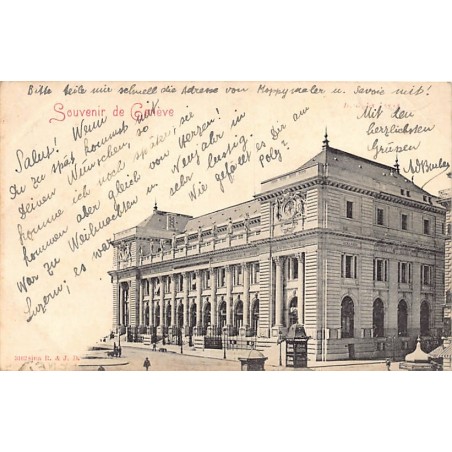 Bitte teile mir schnell die Adresse von Hoppysaaler u. Savoie mit!
Souvenir de Genève
Salut! Wenn
Du zu spät kommst mit
deinen Wünschen, so
komme ich noch später, sie
kommen aber gleich von Herzen!
War zu Weihnachten u. Neujahr in
Luzern; es war sehr lustig.
Wie gefällt es Dir am
Poly?
Mit den
herzlichsten
Grüßen
R. & J. D.